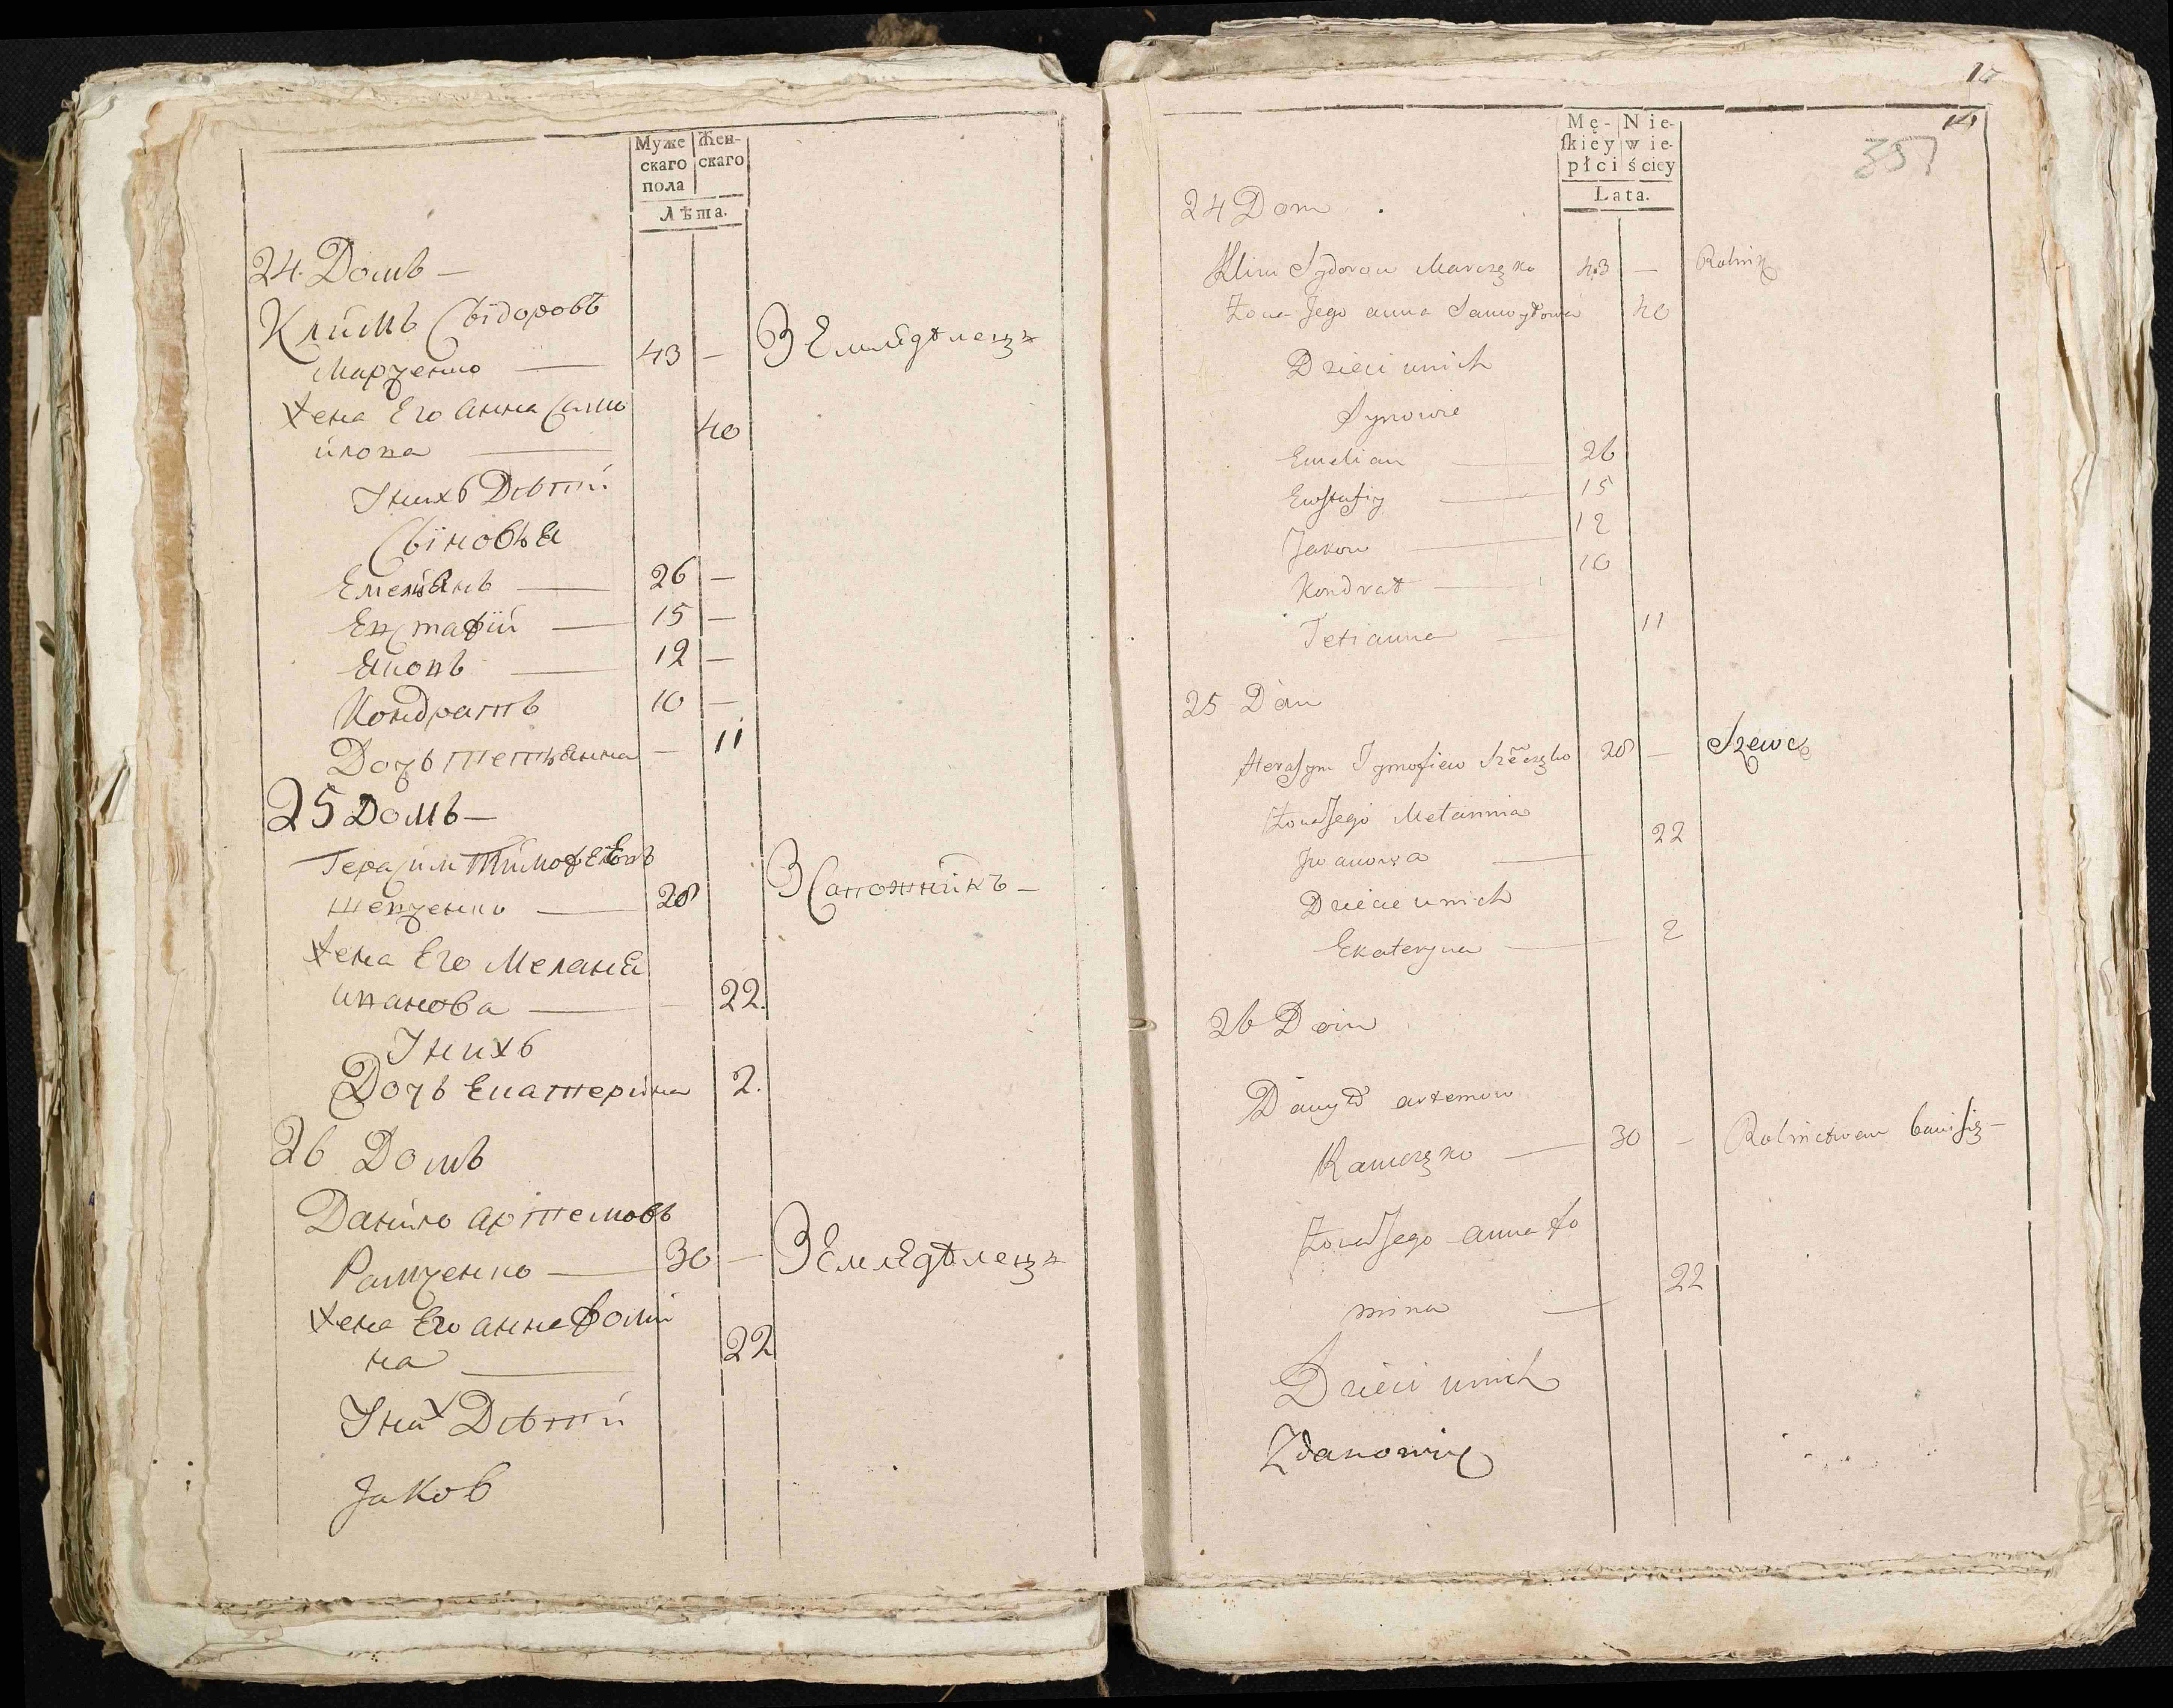 Муже Жен-
скаго скаго
пола
Лѣта.
24. Домъ —
Климъ Сыдоровъ
Марченко — 43 — Землядѣлецъ
жена Его анна Само
илова — 40
Унихъ Дѣтій
Сыновья
Емельянъ — 26 —
Евстафій — 15 —
Яковъ — 12 —
Кондратъ 10 —
Дочь тетьянна — 11
25 Домъ —
Герасим Тимофеевъ
шевченко — 28 Сапожникъ —
жена Его Меланя
иванова — 22.
Унихъ
Дочь Екатерина 2.
26 Домъ
Данило артемовъ
Рамченко — 30 — Землядѣлецъ
жена Его анна Фоми
на — 22
Уних Дѣтій
Jаковъ
14
Mę- Nie-
ſkiéy wie-
płci ściey
Lata.
357
24 Dom
Klim Sydorow Marczęko 43 — Rolnik
Zona Jego anna Samoyłowa 40
Dzieci unich
Synowie
Emelian — 26
Ewstafiy — 15
Jakow — 12
Kondrat — 10
Tetianna — 11
25 Dom
Herasym Tymofiew Szewczęko 28 — Szewc
Zona Jego Metannia
Jwanowa — 22
Dziecie unich
Ekateryna — 2
26 Dom
Danyło artemow
Ramczęko — 30 — Rolnictwem bawi się —
Zona Jego anna Fo
mina — 22
Dzieci unich
Zdanowicz